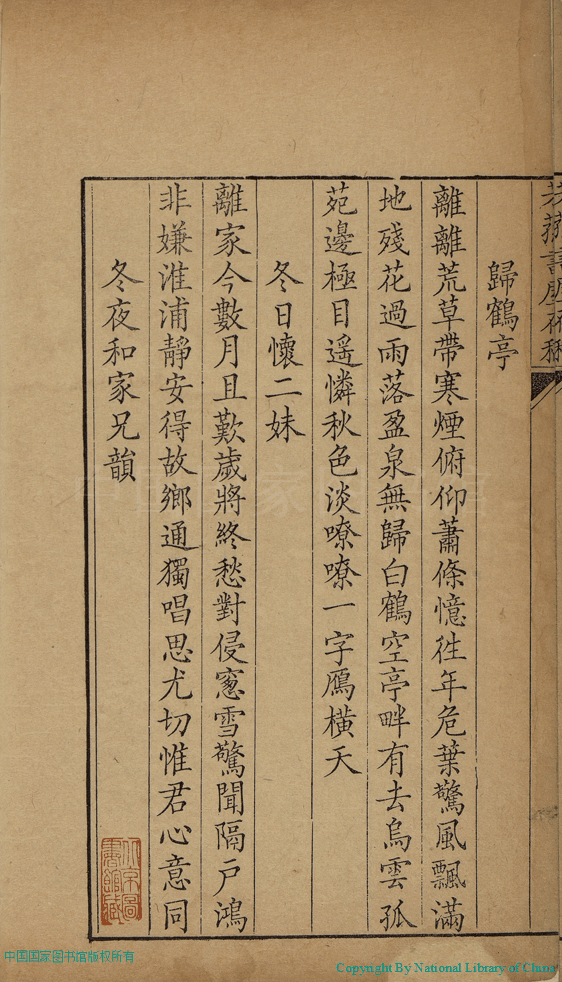 歸鶴亭
離離荒草帶寒煙俯仰蕭條憶往年危葉驚風飄滿
地殘花過雨落盈泉無歸白鶴空亭畔有去烏雲孤
苑邊極目遥憐秋色淡嘹嘹一字鴈橫天
冬日懷二妹
離家今數月且歎歲將終愁對侵窻雪驚聞隔戶鴻
非嫌淮浦靜安得故鄉通獨唱思尤切惟君心意同
冬夜和家兄韻
北京圖書館藏
中国国家图书馆版权所有
Copyright By National Library of China